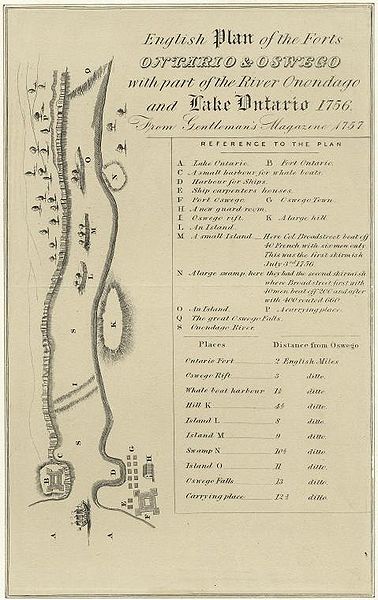 English Plan of the Forts
ONTARIO & OSWEGO
with part of the River Onondago
and Lake Ontario 1756.
From Gentleman's Magazine 1757
REFERENCE TO THE PLAN
A Lake Ontario. B Fort Ontario.
C A small harbour for whale boats.
D Harbour for Ships.
E Ship carpenters houses.
F Fort Oswego. G Oswego Town
H A new guard room.
I Oswego rift. K A large hill.
L An Island.
M A small Island Here Col. Broadstreet beat off
40 French with six men only
This was the first skirmish
July 3rd 1756.
N A large swamp here they had the second skirmish
where Broadstreet first with
10 men beat off 200 and after
with 400 routed 600.
O An Island. P A carrying place.
Q The great Oswego Falls.
S Onondago River.
Places Distance from Oswego
Ontario Fort 2 English Miles
Oswego Rift 3 ditto.
Whale boat harbour ditto.
Hill K ditto.
Island L 8 ditto.
Island M 9 ditto.
Swamp N 10½ ditto.
Island O 11 ditto.
Oswego Falls 13 ditto.
Carrying place 12½ ditto.
O
N
M
L
K
S
I
S
C
B
D
G
H
E
F
A
A